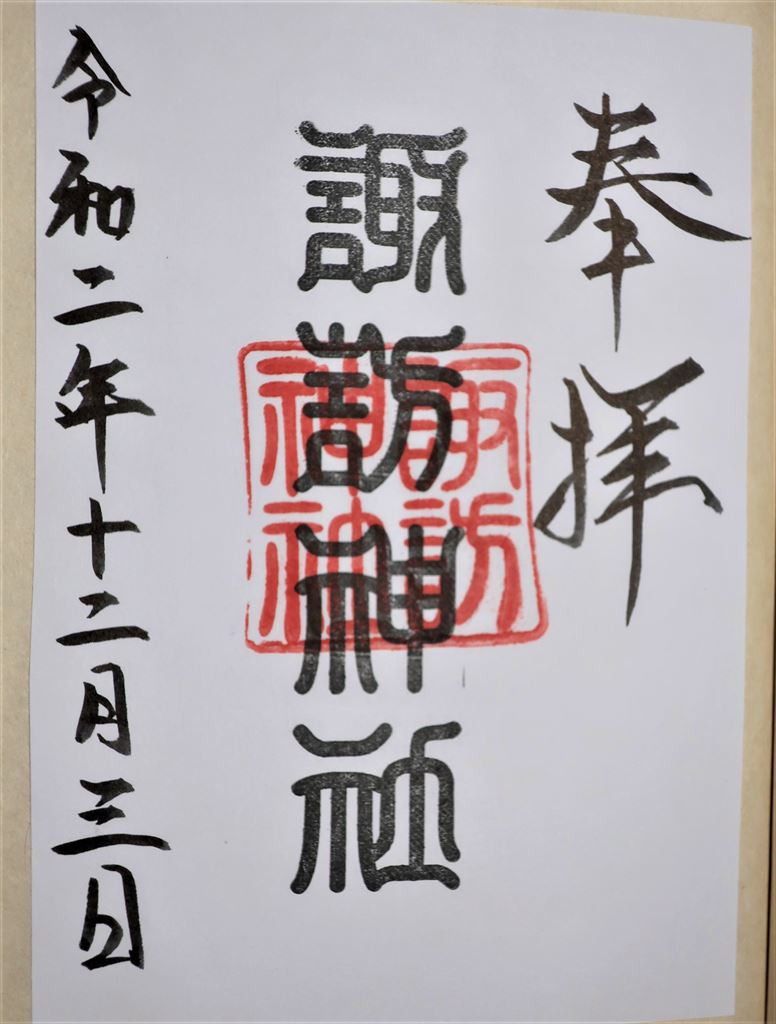 奉拝
諏訪神社
諏訪
神社
令和二年十二月三日